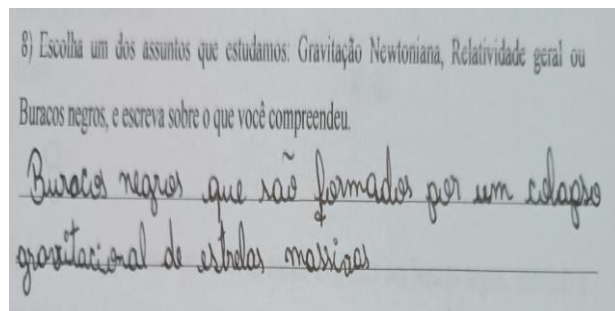 8) Escolha um dos assuntos que estudamos: Gravitação Newtoniana, Relatividade geral ou
Buracos negros, e escreva sobre o que você compreendeu.
Buracos negros que são formados por um colapso
gravitacional de estrelas massivas